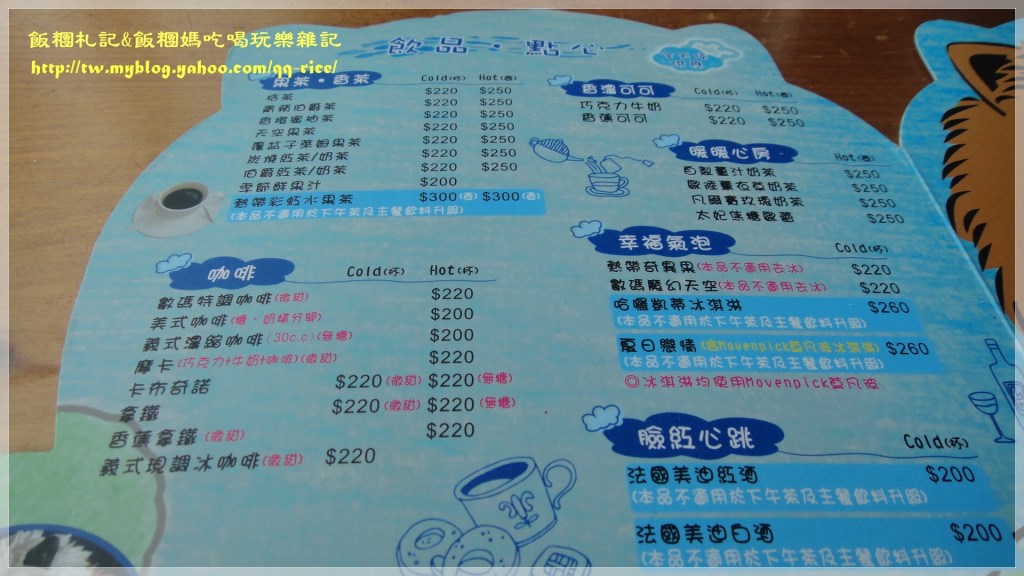 飯糰札記&飯糰媽吃喝玩樂雜記
http://tw.myblog.yahoo.com/qq-rice/
飲品・點心
果茶・香茶 Cold(杯) Hot(壺)
桔茶 $220 $250
蘋伯爵茶 $220 $250
香橙蜜柚茶 $220 $250
天空果茶 $220 $250
覆盆子華姆果茶 $220 $250
炭燒紅茶/奶茶 $220 $250
伯爵紅茶/奶茶 $220 $250
季節鮮果汁 $200
熱帶彩虹水果茶 $300(壺) $300(壺)
(本品不適用於下午茶及主餐飲料升級)
咖啡 Cold(杯) Hot(杯)
數碼特調咖啡(微甜) $220
美式咖啡(糖、奶精分開) $200
義式濃縮咖啡(30c.c)(無糖) $200
摩卡(巧克力+牛奶+咖啡)(微甜) $220
卡布奇諾 $220(微甜) $220(無糖)
拿鐵 $220(微甜) $220(無糖)
香蓮拿鐵(微甜) $220
義式現調冰咖啡(微甜) $220
香濃可可 Cold(杯) Hot(壺)
巧克力牛奶 $220 $250
香蓮可可 $220 $250
暖暖心房 Hot(壺)
自製薑汁奶茶 $250
歐陸薰衣草奶茶 $250
凡爾賽玫瑰奶茶 $250
太妃焦糖歐蕾 $250
幸福氣泡 Cold(杯)
熱帶奇異果(本品不適用去冰) $220
數碼魔幻天空(本品不適用去冰) $220
哈囉凱蒂冰淇淋 $260
(本品不適用於下午茶及主餐飲料升級)
夏日戀情(含Movenpick莫凡彼冰淇淋) $260
(本品不適用於下午茶及主餐飲料升級)
◎冰淇淋均使用Movenpick莫凡彼
臉紅心跳 Cold(杯)
法國美迪紅酒 $200
(本品不適用於下午茶及主餐飲料升級)
法國美迪白酒 $200
(本品不適用於下午茶及主餐飲料升級)